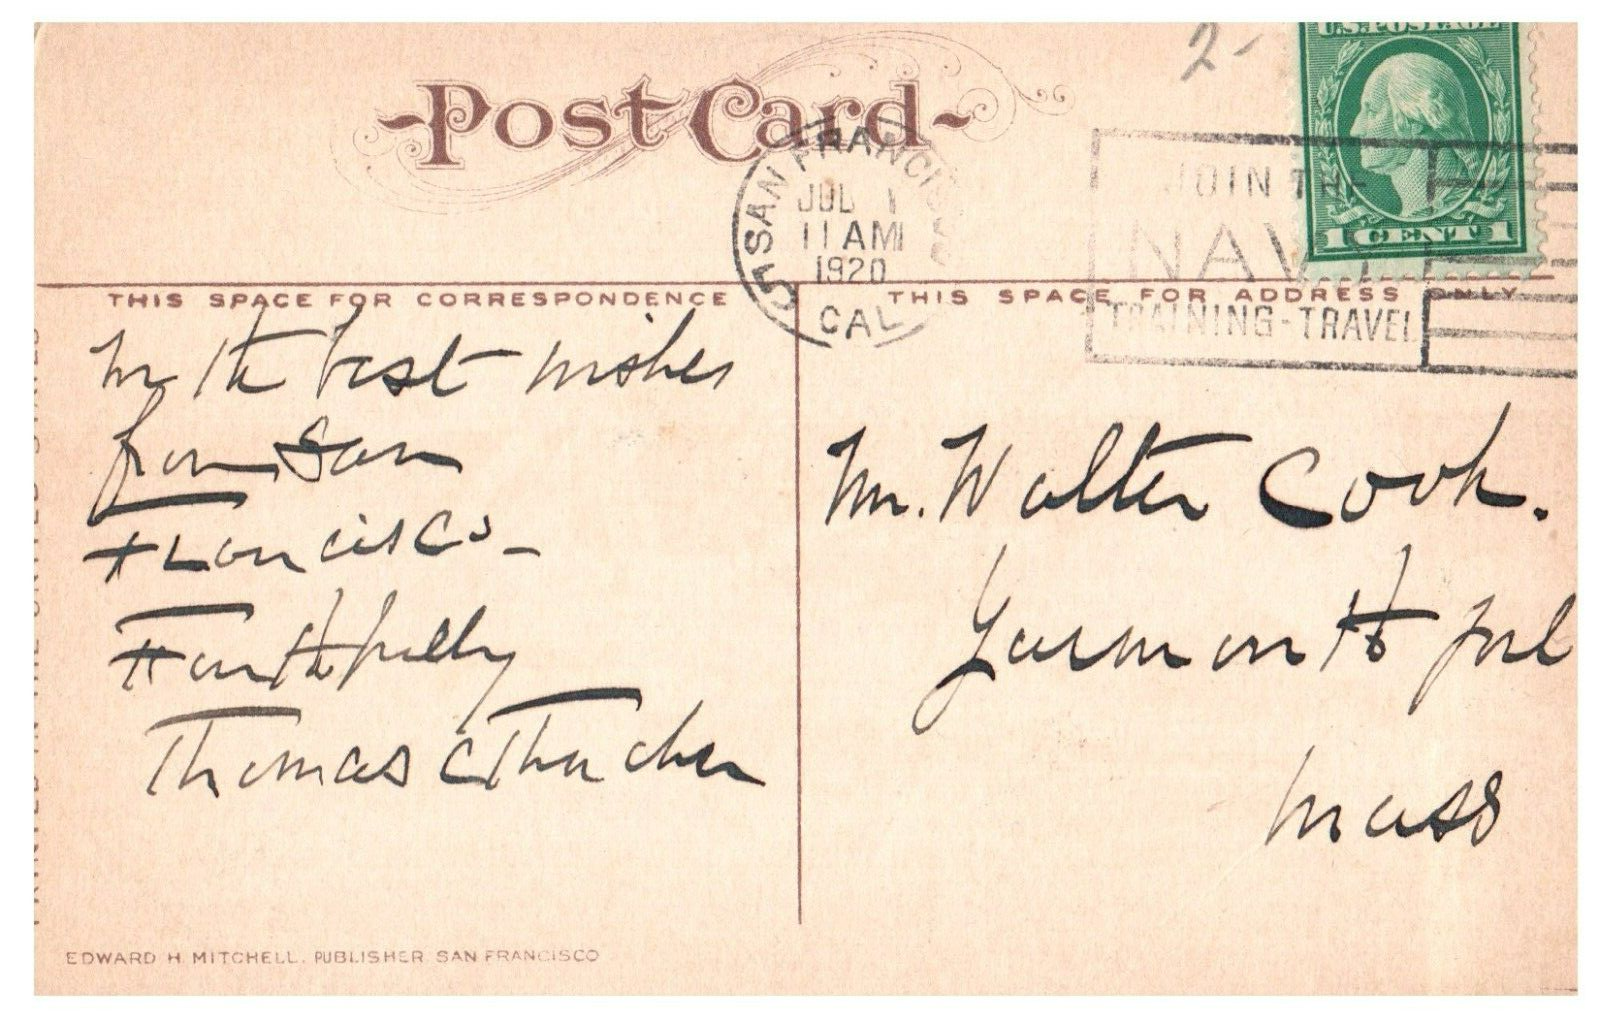 2-
U.S. POSTAGE
Post Card
SAN FRANCISCO
JUL 1
11 AM
1920
CAL.
5
JOIN THE
NAVY
TRAINING-TRAVEL
1 CENT 1
THIS SPACE FOR CORRESPONDENCE
THIS SPACE FOR ADDRESS ONLY
With best wishes
from San
Francisco –
Faithfully
Thomas C Thacher
Mr. Walter Cook.
Yarmouth port
Mass
PRINTED IN THE UNITED STATES
EDWARD H. MITCHELL, PUBLISHER SAN FRANCISCO